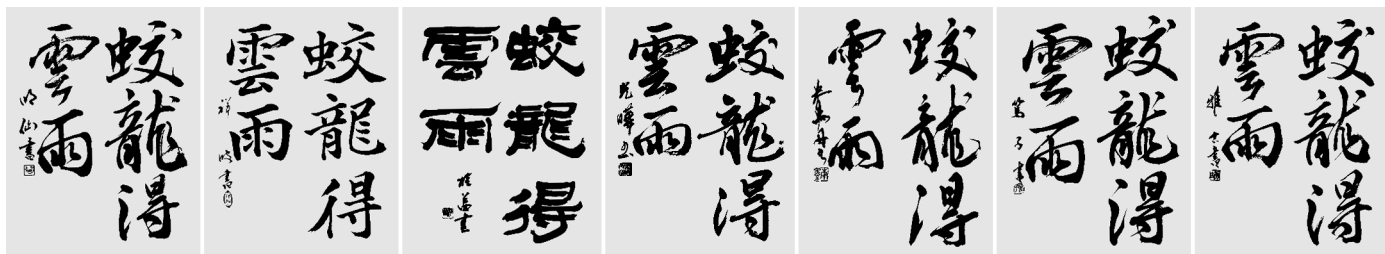 蛟龍得
雲雨
蛟龍得
雲雨
蛟龍得
雲雨
蛟龍得
雲雨
蛟龍得
雲雨
蛟龍得
雲雨
蛟龍得
雲雨